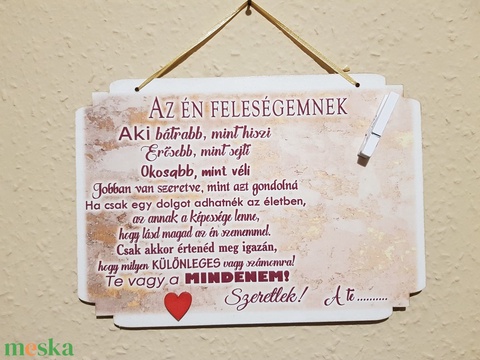 AZ ÉN FELESÉGEMNEK
Aki bátrabb, mint hiszi
Erősebb, mint sejti
Okosabb, mint véli
Jobban van szeretve, mint azt gondolná
Ha csak egy dolgot adhatnék az életben,
az annak a képessége lenne,
hogy lásd magad az én szememmel.
Csak akkor értenéd meg igazán,
hogy milyen KÜLÖNLEGES vagy számomra!
Te vagy a MINDENEM!
Szeretlek! A te ..........
meska